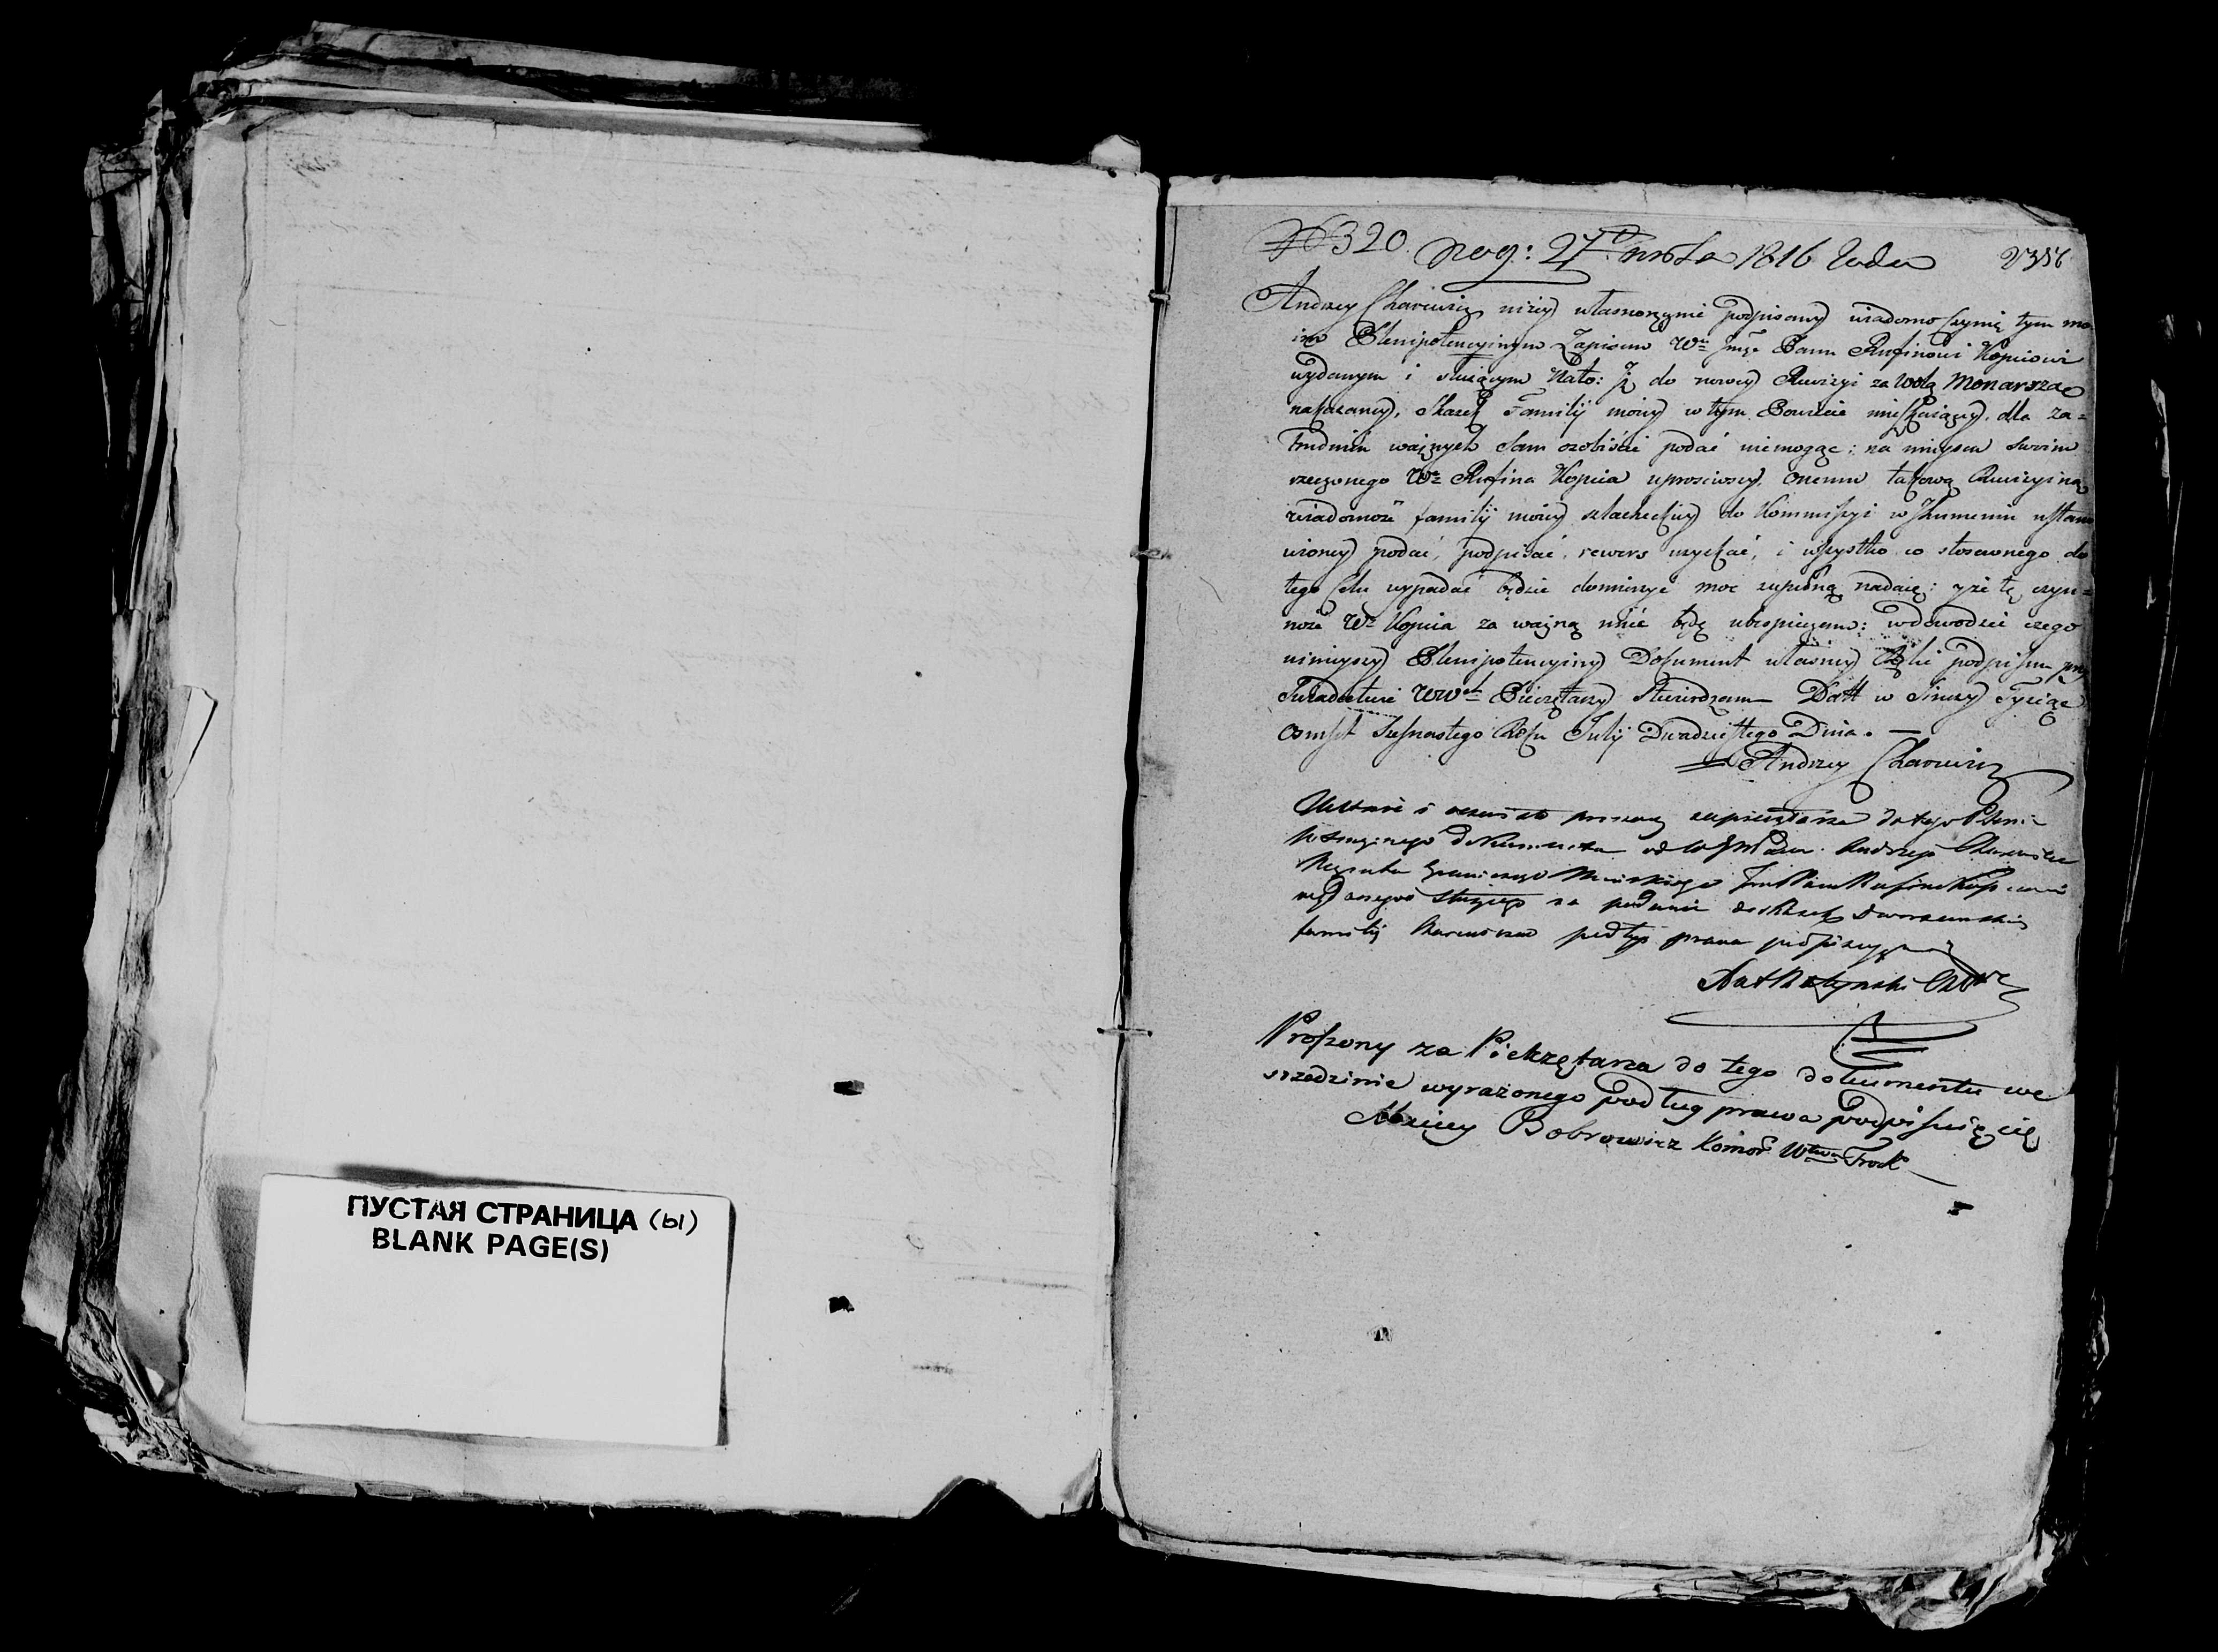 ПУСТАЯ СТРАНИЦА (Ы)
BLANK PAGE(S)
№ 320. Под: 27 Июля 1816 Года
Andrzey Charewicz niżey własnoręcznie podpisany wiadomo czynię tym mo
im Plenipotencyinym Zapisem Wu Jmć Panu Rufinowi Kopciowi
wydanym i służącym Na to: Iż do nowey Rewizyi za Wolą Monarszą
nakazaney, Skazek Familij moiey w tym Powiecie mieszkaiącey, dla za=
trudnień ważnych Sam osobiście podać niemogąc; na mieyscu Swoim
rzeczonego Wo Rufina Kopcia uprosiwszy, Onemu takową Rewizyiną
wiadomość familij moiey szlacheckiey do Kommissyi w Ihumeniu ustano
wioney podać, podpisać, rewers uzyskać, i wszystko co stosownego do
tego Celu wypadać będzie dopełnić moc zupełną nadaię; yże tę czyn=
ność Wo Kopcia za ważną mieć będę ubespieczam; w dowodzie czego
ninieyszy Plenipotencyiny Dokument własney Ręki podpisem przy
Świadectwie WWch Pieczętarzy stwierdzam Datt w Tysiąc
Osmset Szesnastego Roku Julij Dwudziestego Dnia. —
Andrzey Charewicz
Ustnie i oczewisto proszony za pieczętarza do tego Pleni
potencyinego dokumentu od Andrzeja Charewicza
Regenta Granicznego Mińskiego Rufinowi Kopciowi
wydanego służącego na podanie skazek
familij podług prawa podpisuję
Proszony za Pieczętarza do tego dokumentu we
srzedzinie wyrażonego podług prawa podpisuię się
Maciey Bobrowicz Komor Wtwa Trock